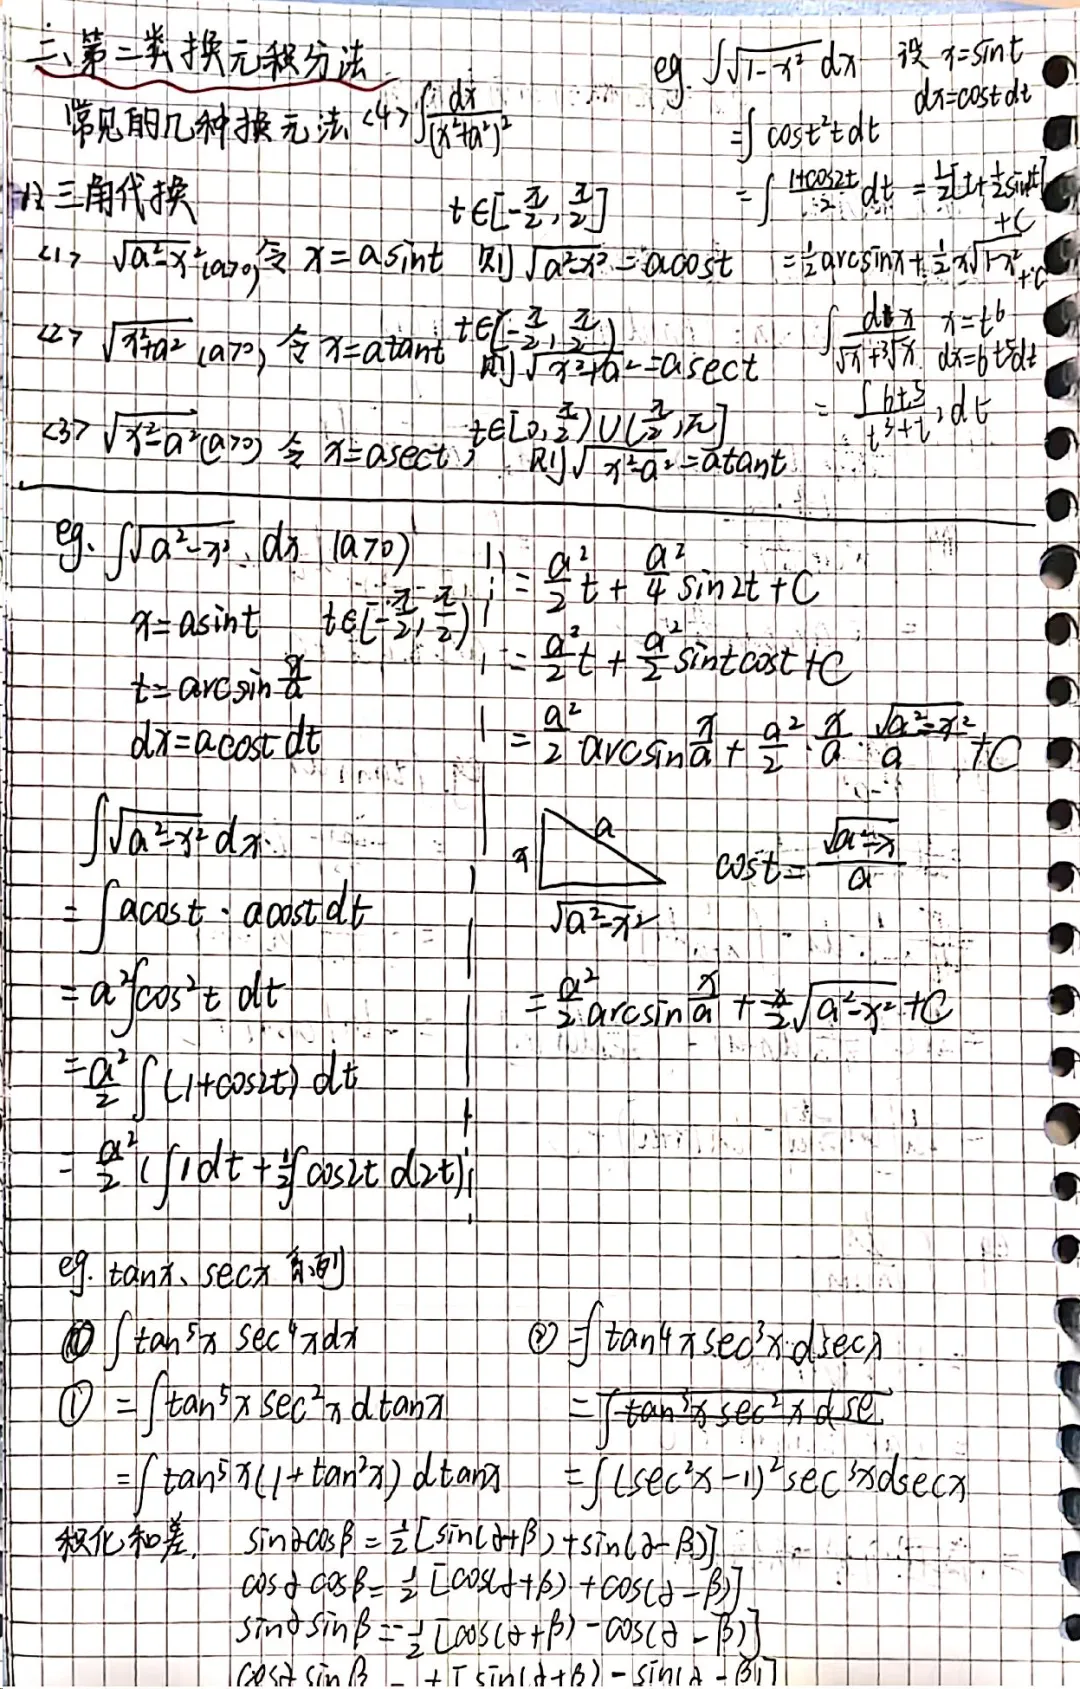 三、第二类换元积分法
常见的几种换元法 <4> ∫dx/(x²+a²)²
(1) 三角代换
t∈[-π/2, π/2]
<1> √(a²-x²) (a>0) 令 x=asint 则√(a²-x²)=acost
t∈(-π/2, π/2)
<2> √(x²+a²) (a>0) 令 x=atant 则√(x²+a²)=asect
t∈[0, π/2)∪(π/2, π]
<3> √(x²-a²) (a>0) 令 x=asect, 则√(x²-a²)=atant
eg. ∫√(1-x²) dx 设 x=sint
dx=costdt
=∫cost²tdt
=∫(1+cos2t)/2 dt = ½[t+½sin2t]
+C
=½arcsinx+½x√(1-x²)+C
∫dx/(√x+³√x) x=t⁶
dx=6t⁵dt
=∫6t⁵/(t³+t²) dt
eg. ∫√(a²-x²) dx (a>0)
x=asint t∈[-π/2, π/2)
t=arcsin x/a
dx=acost dt
∫√(a²-x²) dx
=∫acost · acostdt
=a²∫cos²t dt
=a²/2 ∫(1+cos2t) dt
=a²/2 (∫1dt+½∫cos2t d(2t))
=a²/2 t + a²/4 sin2t+C
=a²/2 t + a²/2 sintcost+C
=a²/2 · arcsin x/a + a²/2 · x/a · √(a²-x²)/a +C
x a √(a²-x²)
cost=√(a²-x)/a
=a²/2 arcsin x/a + x/2 √(a²-x²)+C
eg. tanx、secx 系列
∫tan⁵x sec⁴xdx
① =∫tan⁵x sec²x dtanx
=∫tan⁵x(1+tan²x) dtanx
② =∫tan⁴x sec³x·dsecx
=∫tan³x sec²x d se
=∫(sec²x-1)²sec³xdsecx
积化和差. sinαcosβ=½[sin(α+β)+sin(α-β)]
cosαcosβ=½[cos(α+β)+cos(α-β)]
sinαsinβ=-½[cos(α+β)-cos(α-β)]
cosαsinβ [sin(α+β)-sin(α-β)]